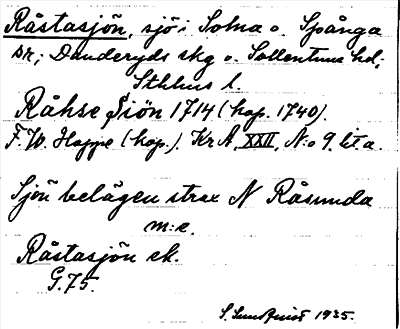 Råstasjön, sjö i Solna o. Spånga
snr; Danderyds skg o. Sollentuna hd;
Sthlms l.
Råhse Siön 1714 (kop. 1740).
F. W. Hoppe (kop.). Kr A, XXII, N:o 9, lit a.
Sjön belägen strax N Råsunda
m:e.
Råstasjön ek.
G. 75.
S. Lundquist 1935.